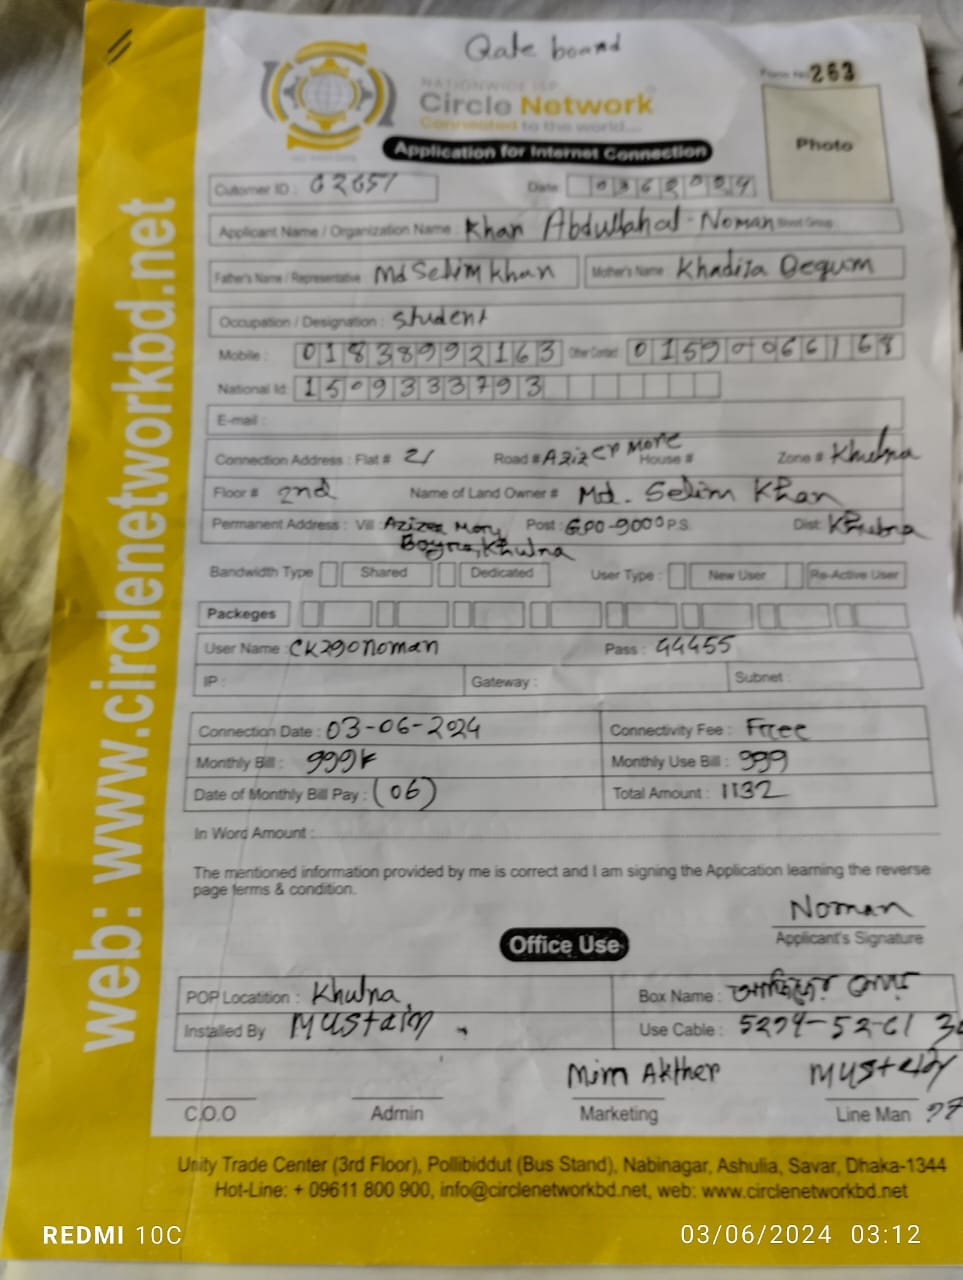 Qate board
NATIONWIDE ISP
Circle Network
Connected to the world....
Form No 263
Photo
Application for Internet Connection
Cutomer ID : 02651 Date 0362024
Applicant Name / Organization Name : Khan Abdullahal-Noman Blood Group :
Father's Name / Representative Md Selim Khan Mother's Name Khadija Begum
Occupation / Designation : Student
Mobile : 01838992163 Other Contact 01590066168
National Id: 1509333793
E-mail :
Connection Address : Flat # 21 Road # Azizer More House # Zone # Khulna
Floor # 2nd Name of Land Owner # Md. Selim Khan
Permanent Address : Vill Azizer More Post : GPO-9000 P.S. Dist: Khulna
Boyra, Khulna
Bandwidth Type Shared Dedicated User Type : New User Re-Active User
Packeges
User Name : CK290noman Pass : 44455
IP : Gateway : Subnet :
Connection Date : 03-06-2024 Connectivity Fee : Free
Monthly Bill : 999 Monthly Use Bill : 999
Date of Monthly Bill Pay : (06) Total Amount : 1132
In Word Amount :
The mentioned information provided by me is correct and I am signing the Application learning the reverse
page terms & condition.
Noman
Applicant's Signature
Office Use
POP Locatition : Khulna, Box Name :
Installed By Mustaim Use Cable :
Mim Akther
C.O.O Admin Marketing Line Man
Unity Trade Center (3rd Floor), Pollibiddut (Bus Stand), Nabinagar, Ashulia, Savar, Dhaka-1344
Hot-Line: + 09611 800 900, info@circlenetworkbd.net, web: www.circlenetworkbd.net
web: www.circlenetworkbd.net
REDMI 10C 03/06/2024 03:12